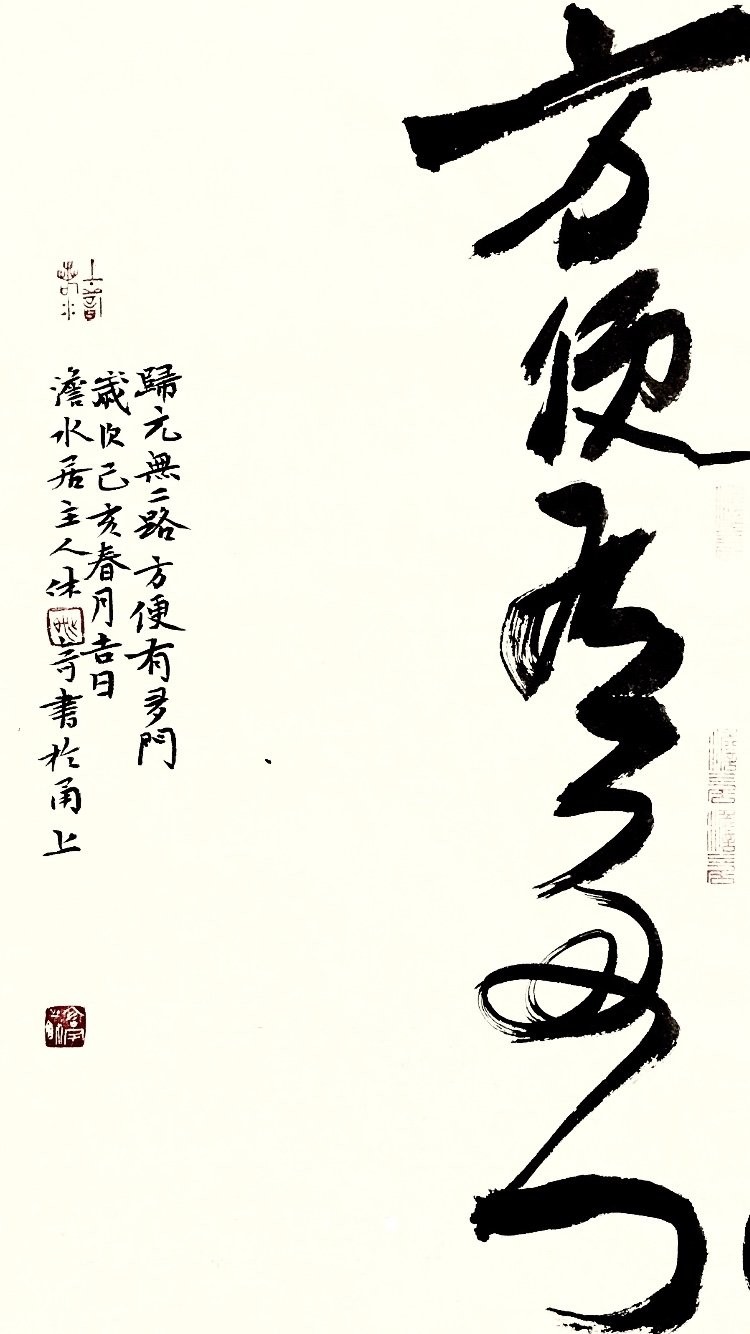 方便有多门
歸元無二路方便有多門
歲次己亥春月吉日
澹水居主人休奇書於甬上